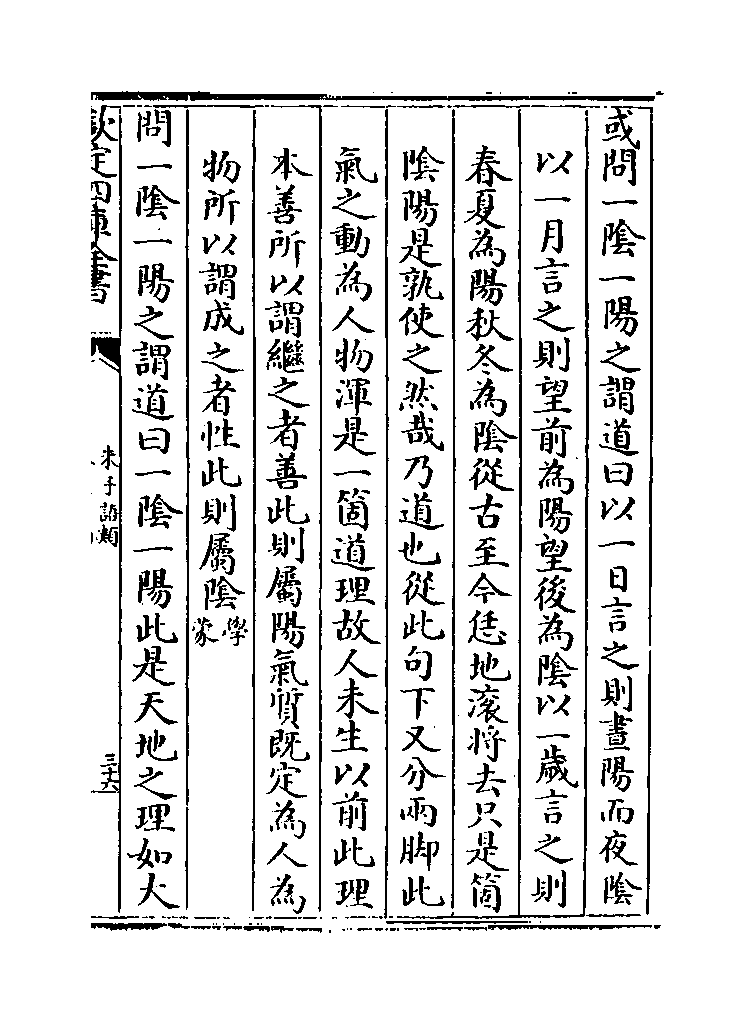 或問一陰一陽之謂道曰以一日言之則晝陽而夜陰
以一月言之則望前為陽望後為陰以一歲言之則
春夏為陽秋冬為陰從古至今恁地滾將去只是箇
陰陽是孰使之然哉乃道也從此句下又分兩脚此
氣之動為人物渾是一箇道理故人未生以前此理
本善所以謂繼之者善此則屬陽氣質既定為人為
物所以謂成之者性此則屬陰學蒙
問一陰一陽之謂道曰一陰一陽此是天地之理如大
欽定四庫全書
朱子語類
三十六